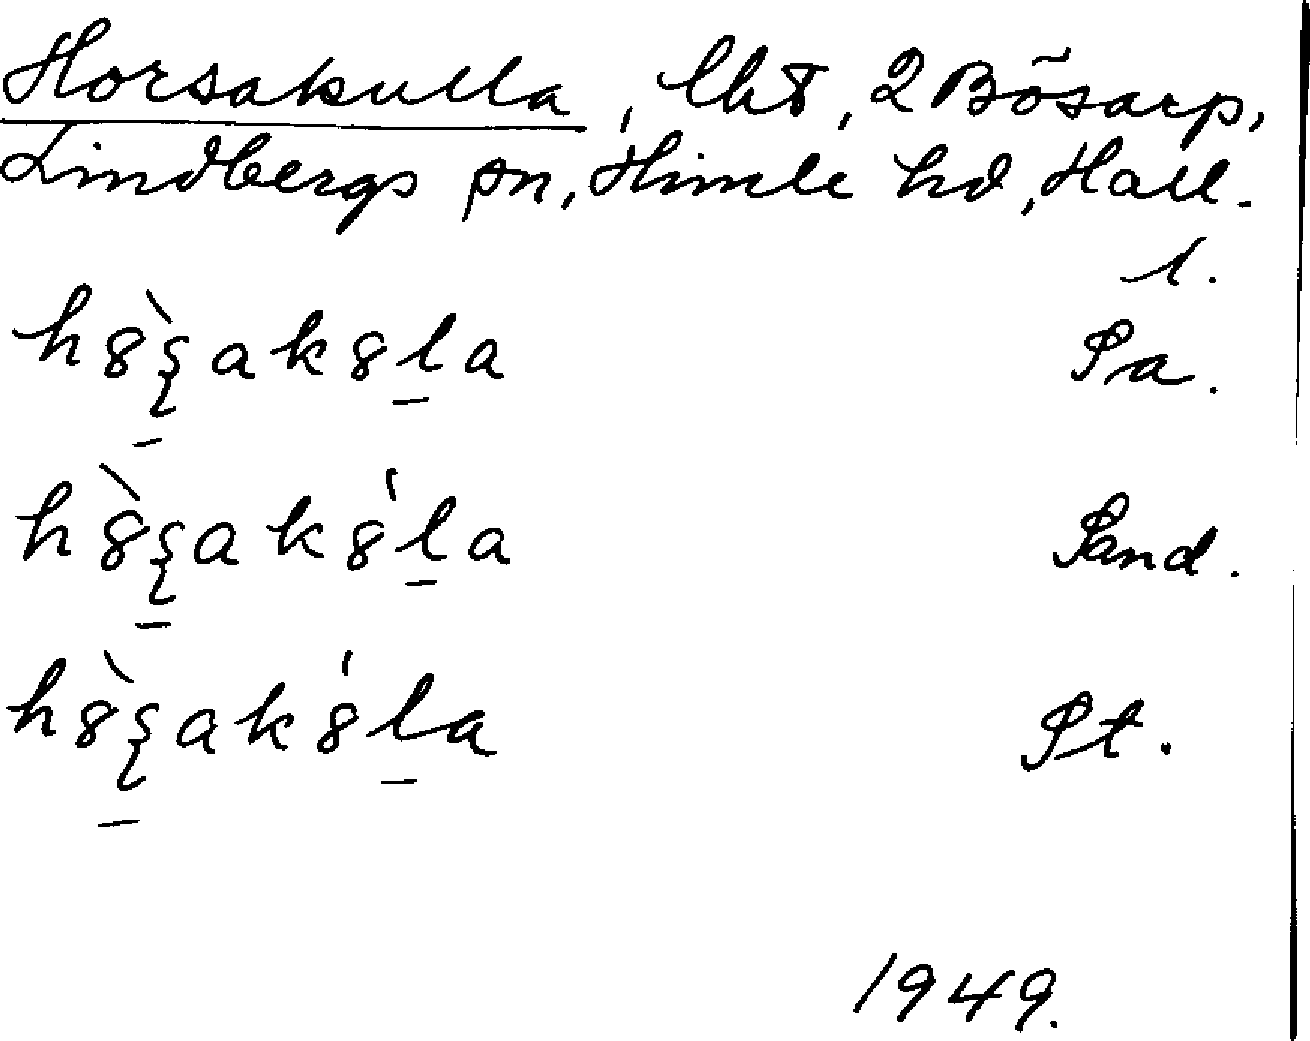 Horsakulla, lht, 2 Bösarp,
Lindbergs sn, Himle hd, Hall.
1.
h8̀s̨ak8l̲a Pa.
h8̀s̨ak8́l̲a Sand.
h8̀s̨ak8́l̲a Pt.
1949.